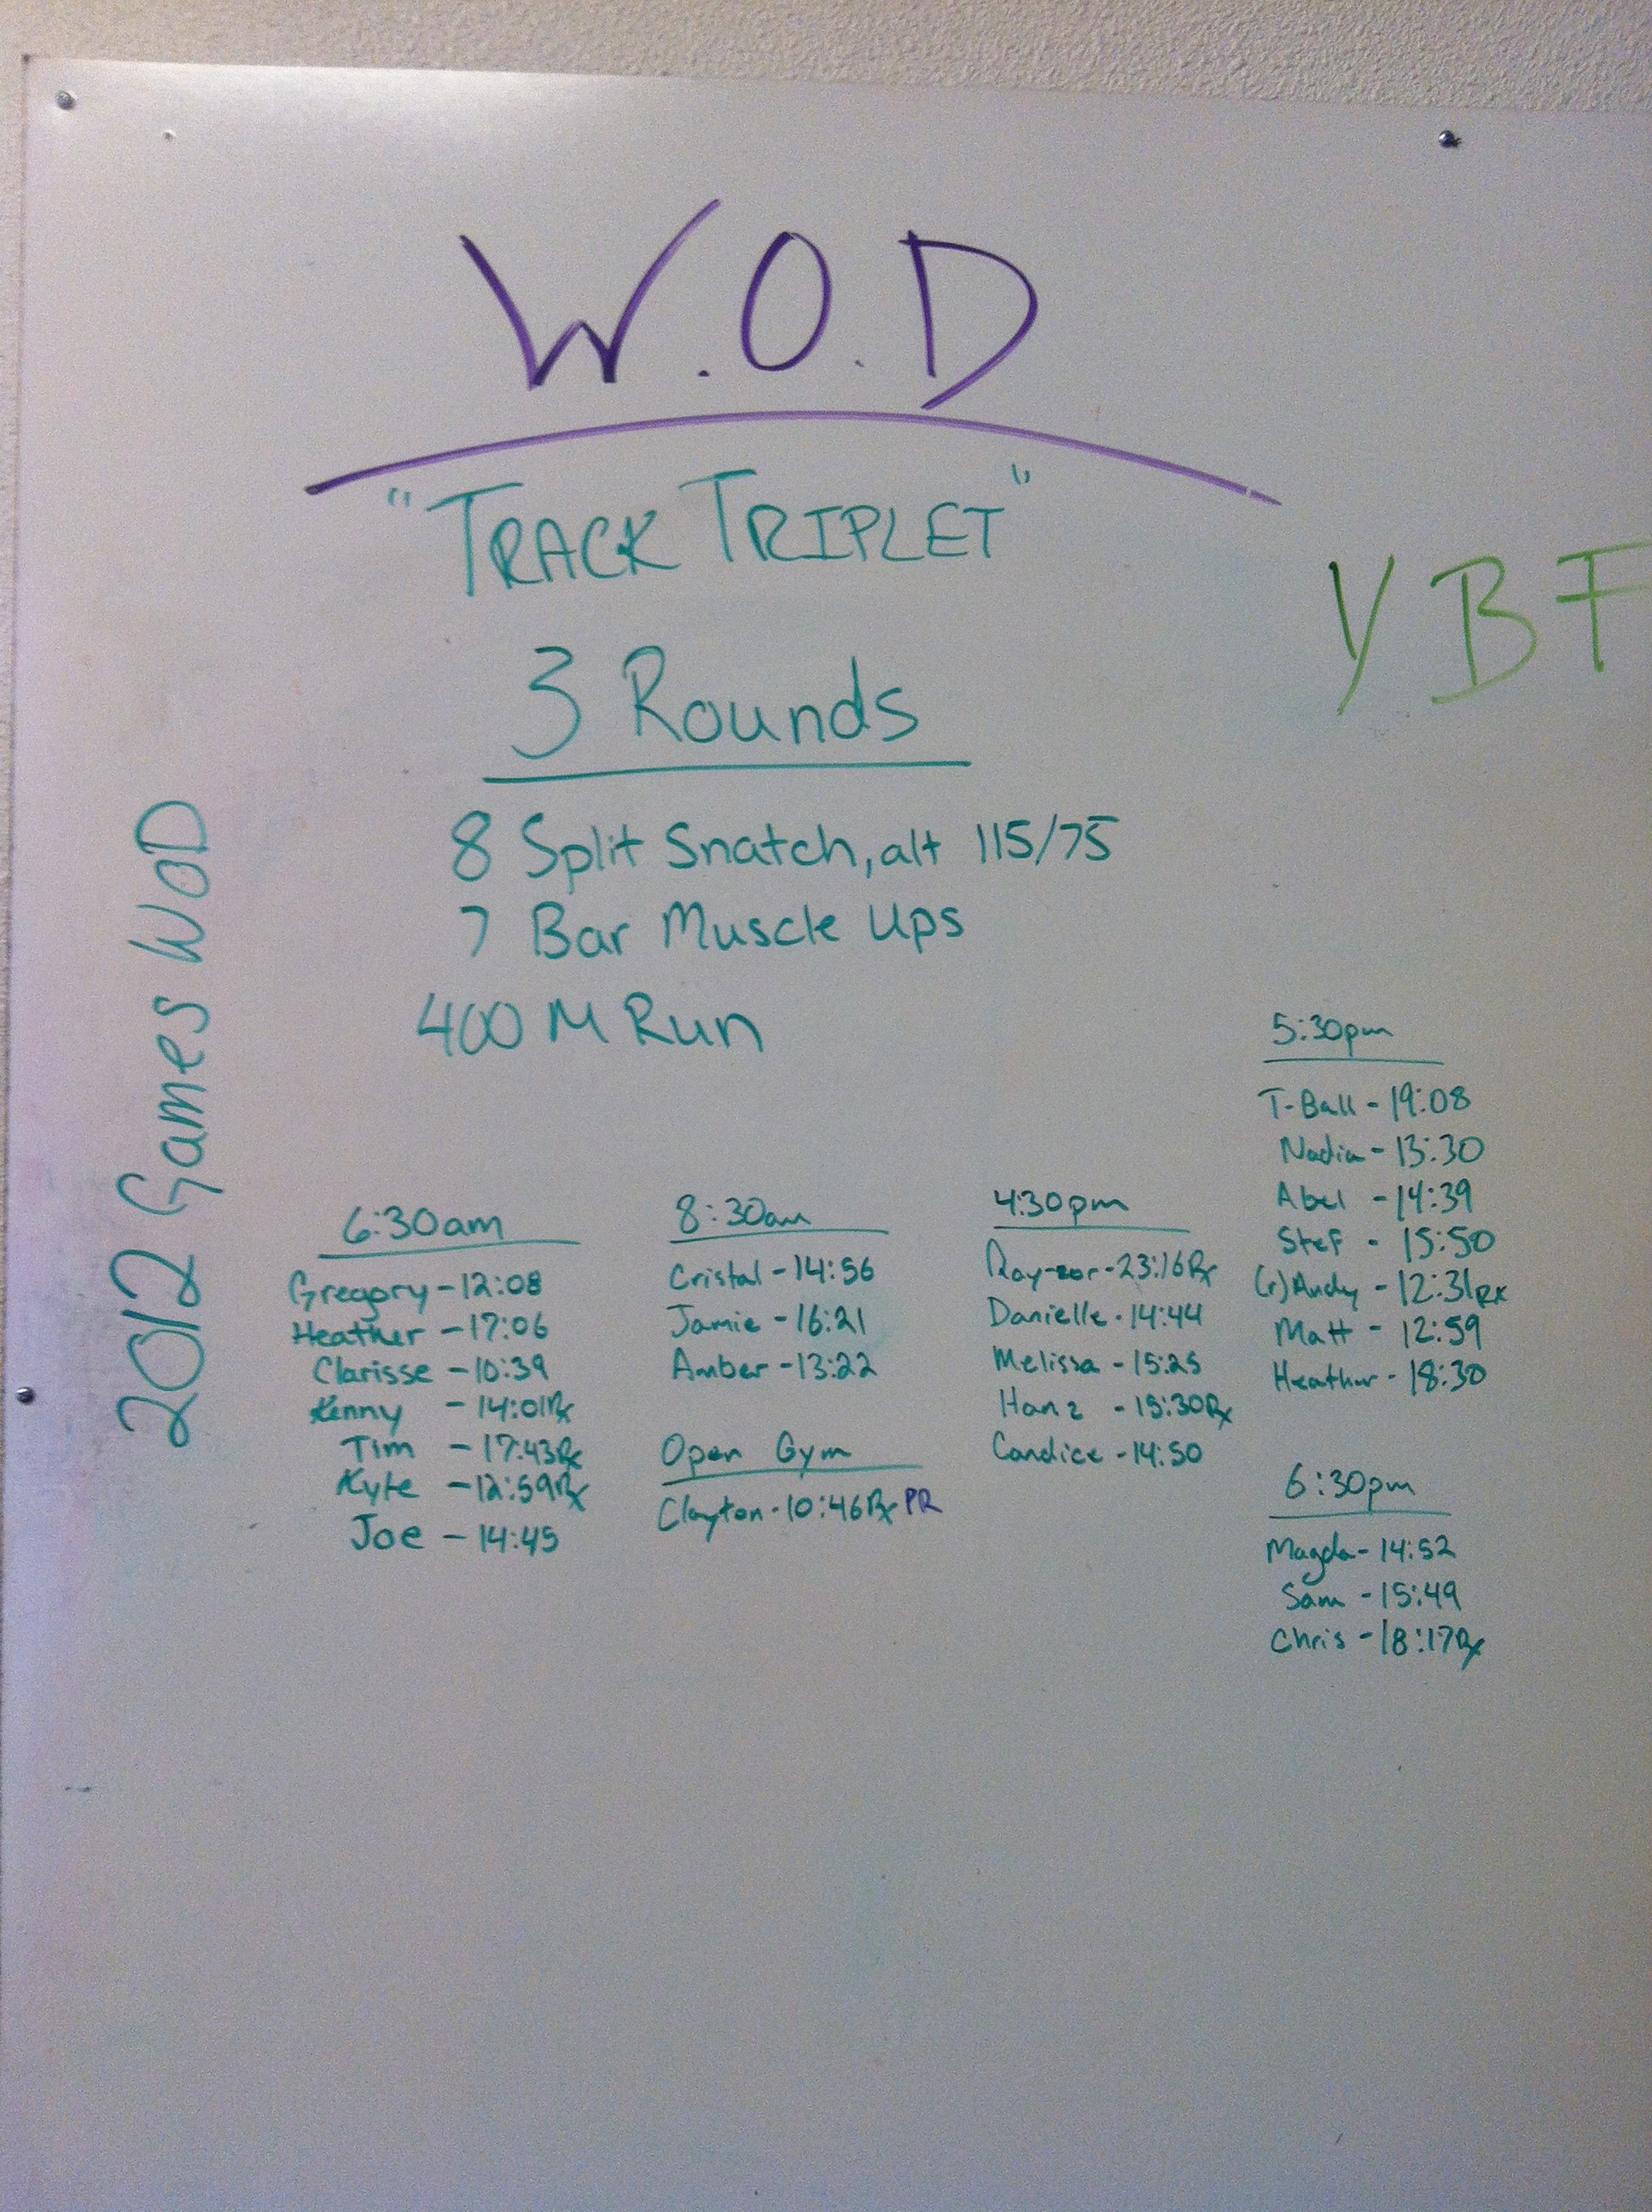 W.O.D
"TRACK TRIPLET"
YBF
3 Rounds
8 Split Snatch, alt 115/75
7 Bar Muscle Ups
400 M Run
2012 Games WOD
6:30am
Gregory - 12:08
Heather - 17:06
Clarisse - 10:39
Kenny - 14:01Rx
Tim - 17:43Rx
Kyle - 12:59Rx
Joe - 14:45
8:30am
Cristal - 14:56
Jamie - 16:21
Amber - 13:22
Open Gym
Clayton - 10:46Rx PR
4:30pm
Ray-zor - 23:16Rx
Danielle - 14:44
Melissa - 15:25
Hanz - 15:30Rx
Candice - 14:50
5:30pm
T-Ball - 19:08
Nadia - 13:30
Abel - 14:39
Stef - 15:50
(r)Andy - 12:31Rx
Matt - 12:59
Heather - 18:30
6:30pm
Magda - 14:52
Sam - 15:49
Chris - 18:17Rx